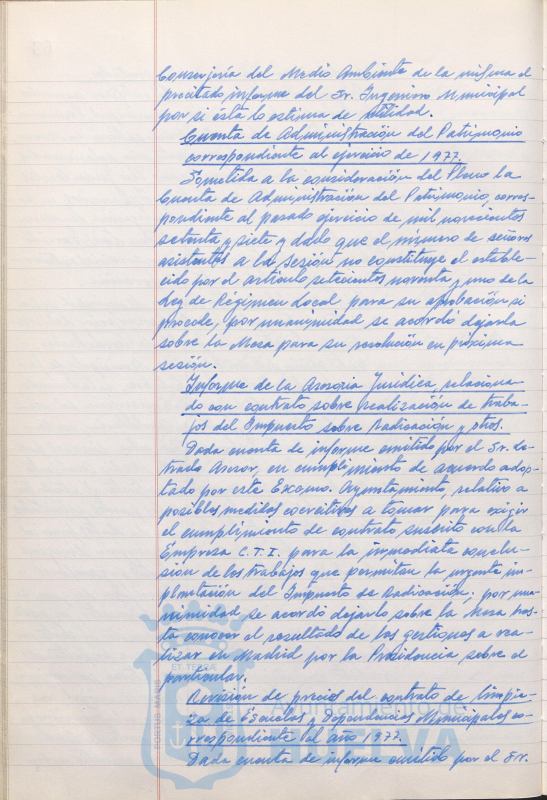 Consejería del Medio Ambiente de la misma el
precitado informe del Sr. Ingeniero Municipal
por si ésta lo estima de utilidad.
Cuenta de Administración del Patrimonio
correspondiente al ejercicio de 1977.
Sometida a la consideración del Pleno la
Cuenta de Administración del Patrimonio, corres-
pondiente al pasado ejercicio de mil novecientos
setenta y siete y dado que el número de señores
asistentes a la sesión no constituye el estable-
cido por el artículo setecientos noventa y uno de la
Ley de Régimen Local para su aprobación si
procede, por unanimidad se acordó dejarla
sobre la Mesa para su resolución en próxima
sesión.
Informe de la Asesoría Jurídica, relaciona-
do con contrato sobre realización de traba-
jos del Impuesto sobre Radicación y otros.
Dada cuenta de informe emitido por el Sr. Le-
trado Asesor, en cumplimiento de acuerdo adop-
tado por este Excmo. Ayuntamiento, relativo a
posibles medidas coercitivas a tomar para exigir
el cumplimiento de contrato suscrito con la
Empresa C.T.I. para la inmediata conclu-
sión de los trabajos que permitan la urgente im-
plantación del Impuesto de Radicación; por una-
nimidad se acordó dejarlo sobre la Mesa has-
ta conocer el resultado de las gestiones a rea-
lizar en Madrid por la Presidencia sobre el
particular.
Revisión de precios del contrato de limpie-
za de Escuelas y Dependencias Municipales co-
rrespondiente al año 1977.
Dada cuenta de informe emitido por el Sr.
PORTUS MARIS
ET TERRAE
Ayuntamiento de
HUELVA